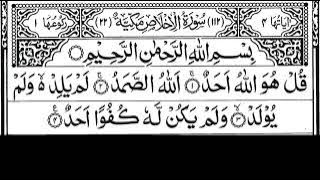 اٰیَاتُهَا ۴ (۱۱۲) سُوْرَةُ الْاِخْلَاصِ مَكِّیَّةٌ (۲۲) رُكُوْعُهَا ۱
بِسْمِ اللّٰهِ الرَّحْمٰنِ الرَّحِیْمِ
قُلْ هُوَ اللّٰهُ اَحَدٌ ۱ اَللّٰهُ الصَّمَدُ ۲ لَمْ یَلِدْ وَلَمْ
یُوْلَدْ ۳ وَلَمْ یَكُنْ لَّهٗ كُفُوًا اَحَدٌ ۴